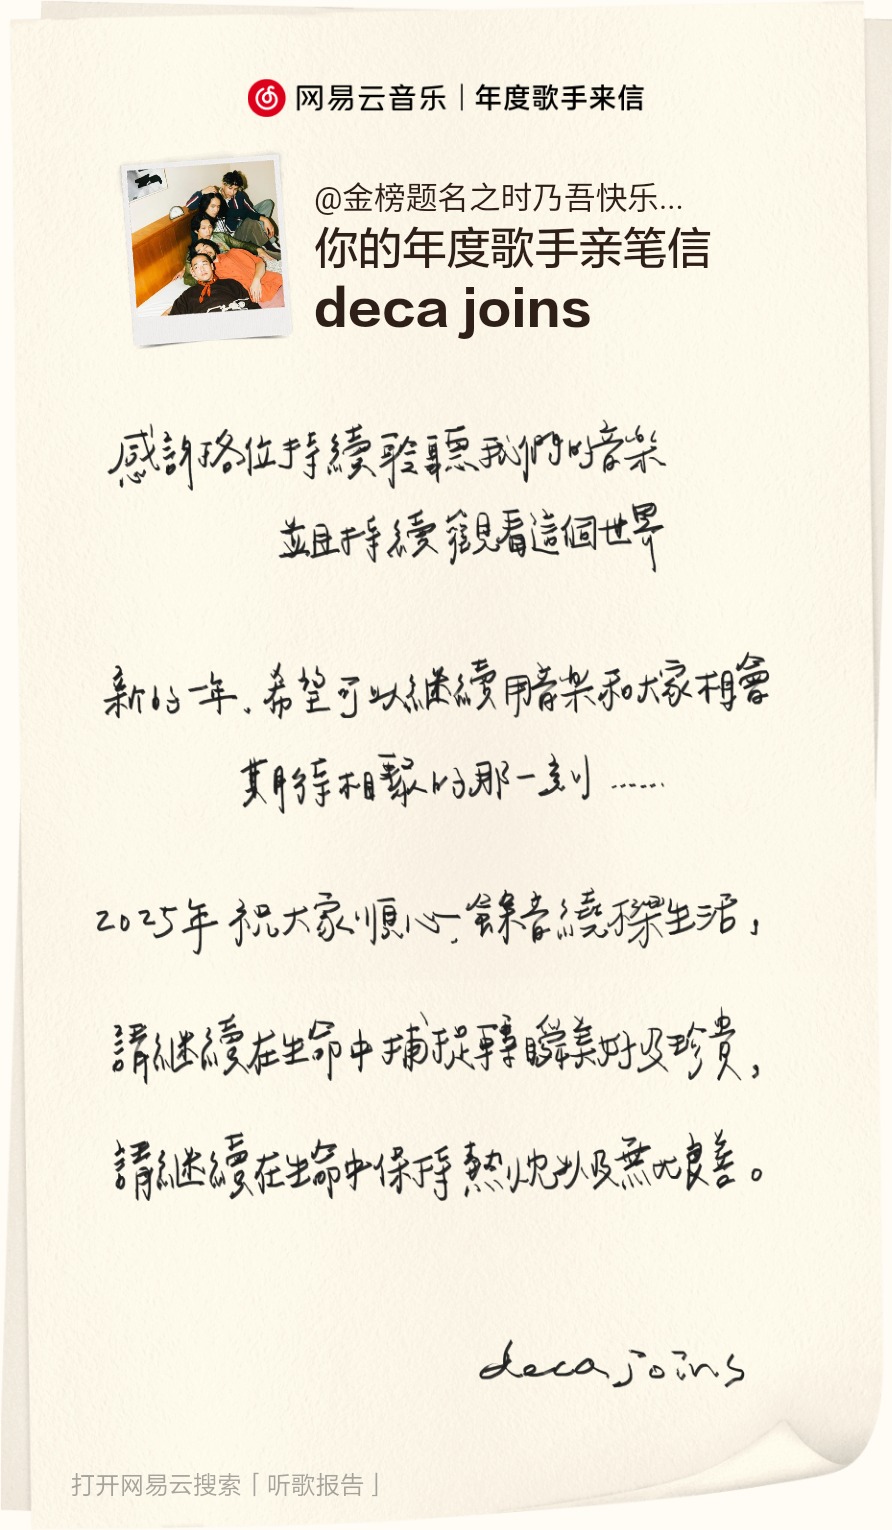 网易云音乐｜年度歌手来信
@金榜题名之时乃吾快乐...
你的年度歌手亲笔信
deca joins
感謝各位持續聆聽我們的音樂
並且持續觀看這個世界
新的一年、希望可以繼續用音樂和大家相會
期待相聚的那一刻……
2025年祝大家順心、餘音繞樑生活，
請繼續在生命中捕捉轉瞬美好及珍貴，
請繼續在生命中保持熱忱以及無比良善。
deca joins
打开网易云搜索「听歌报告」